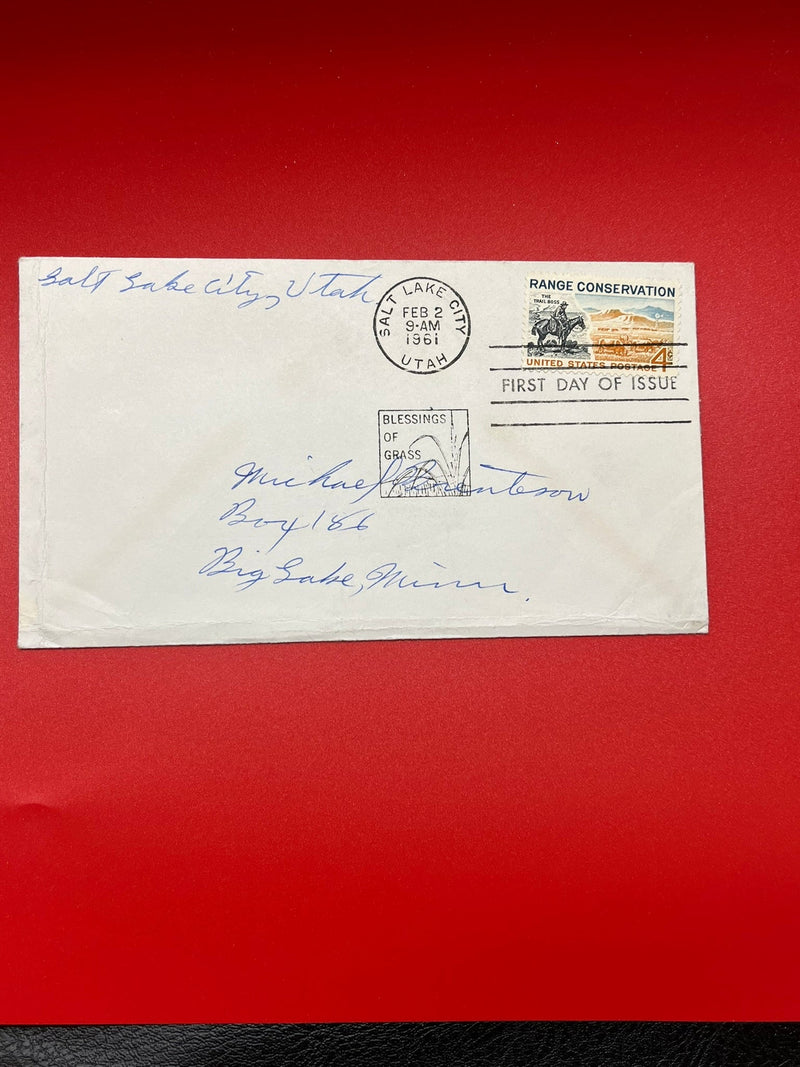 Salt Lake City, Utah
SALT LAKE CITY
FEB 2
9-AM
1961
UTAH
RANGE CONSERVATION
THE
TRAIL BOSS
UNITED STATES POSTAGE 4¢
FIRST DAY OF ISSUE
BLESSINGS
OF
GRASS
Michael
Box 186
Big Lake, Minn.